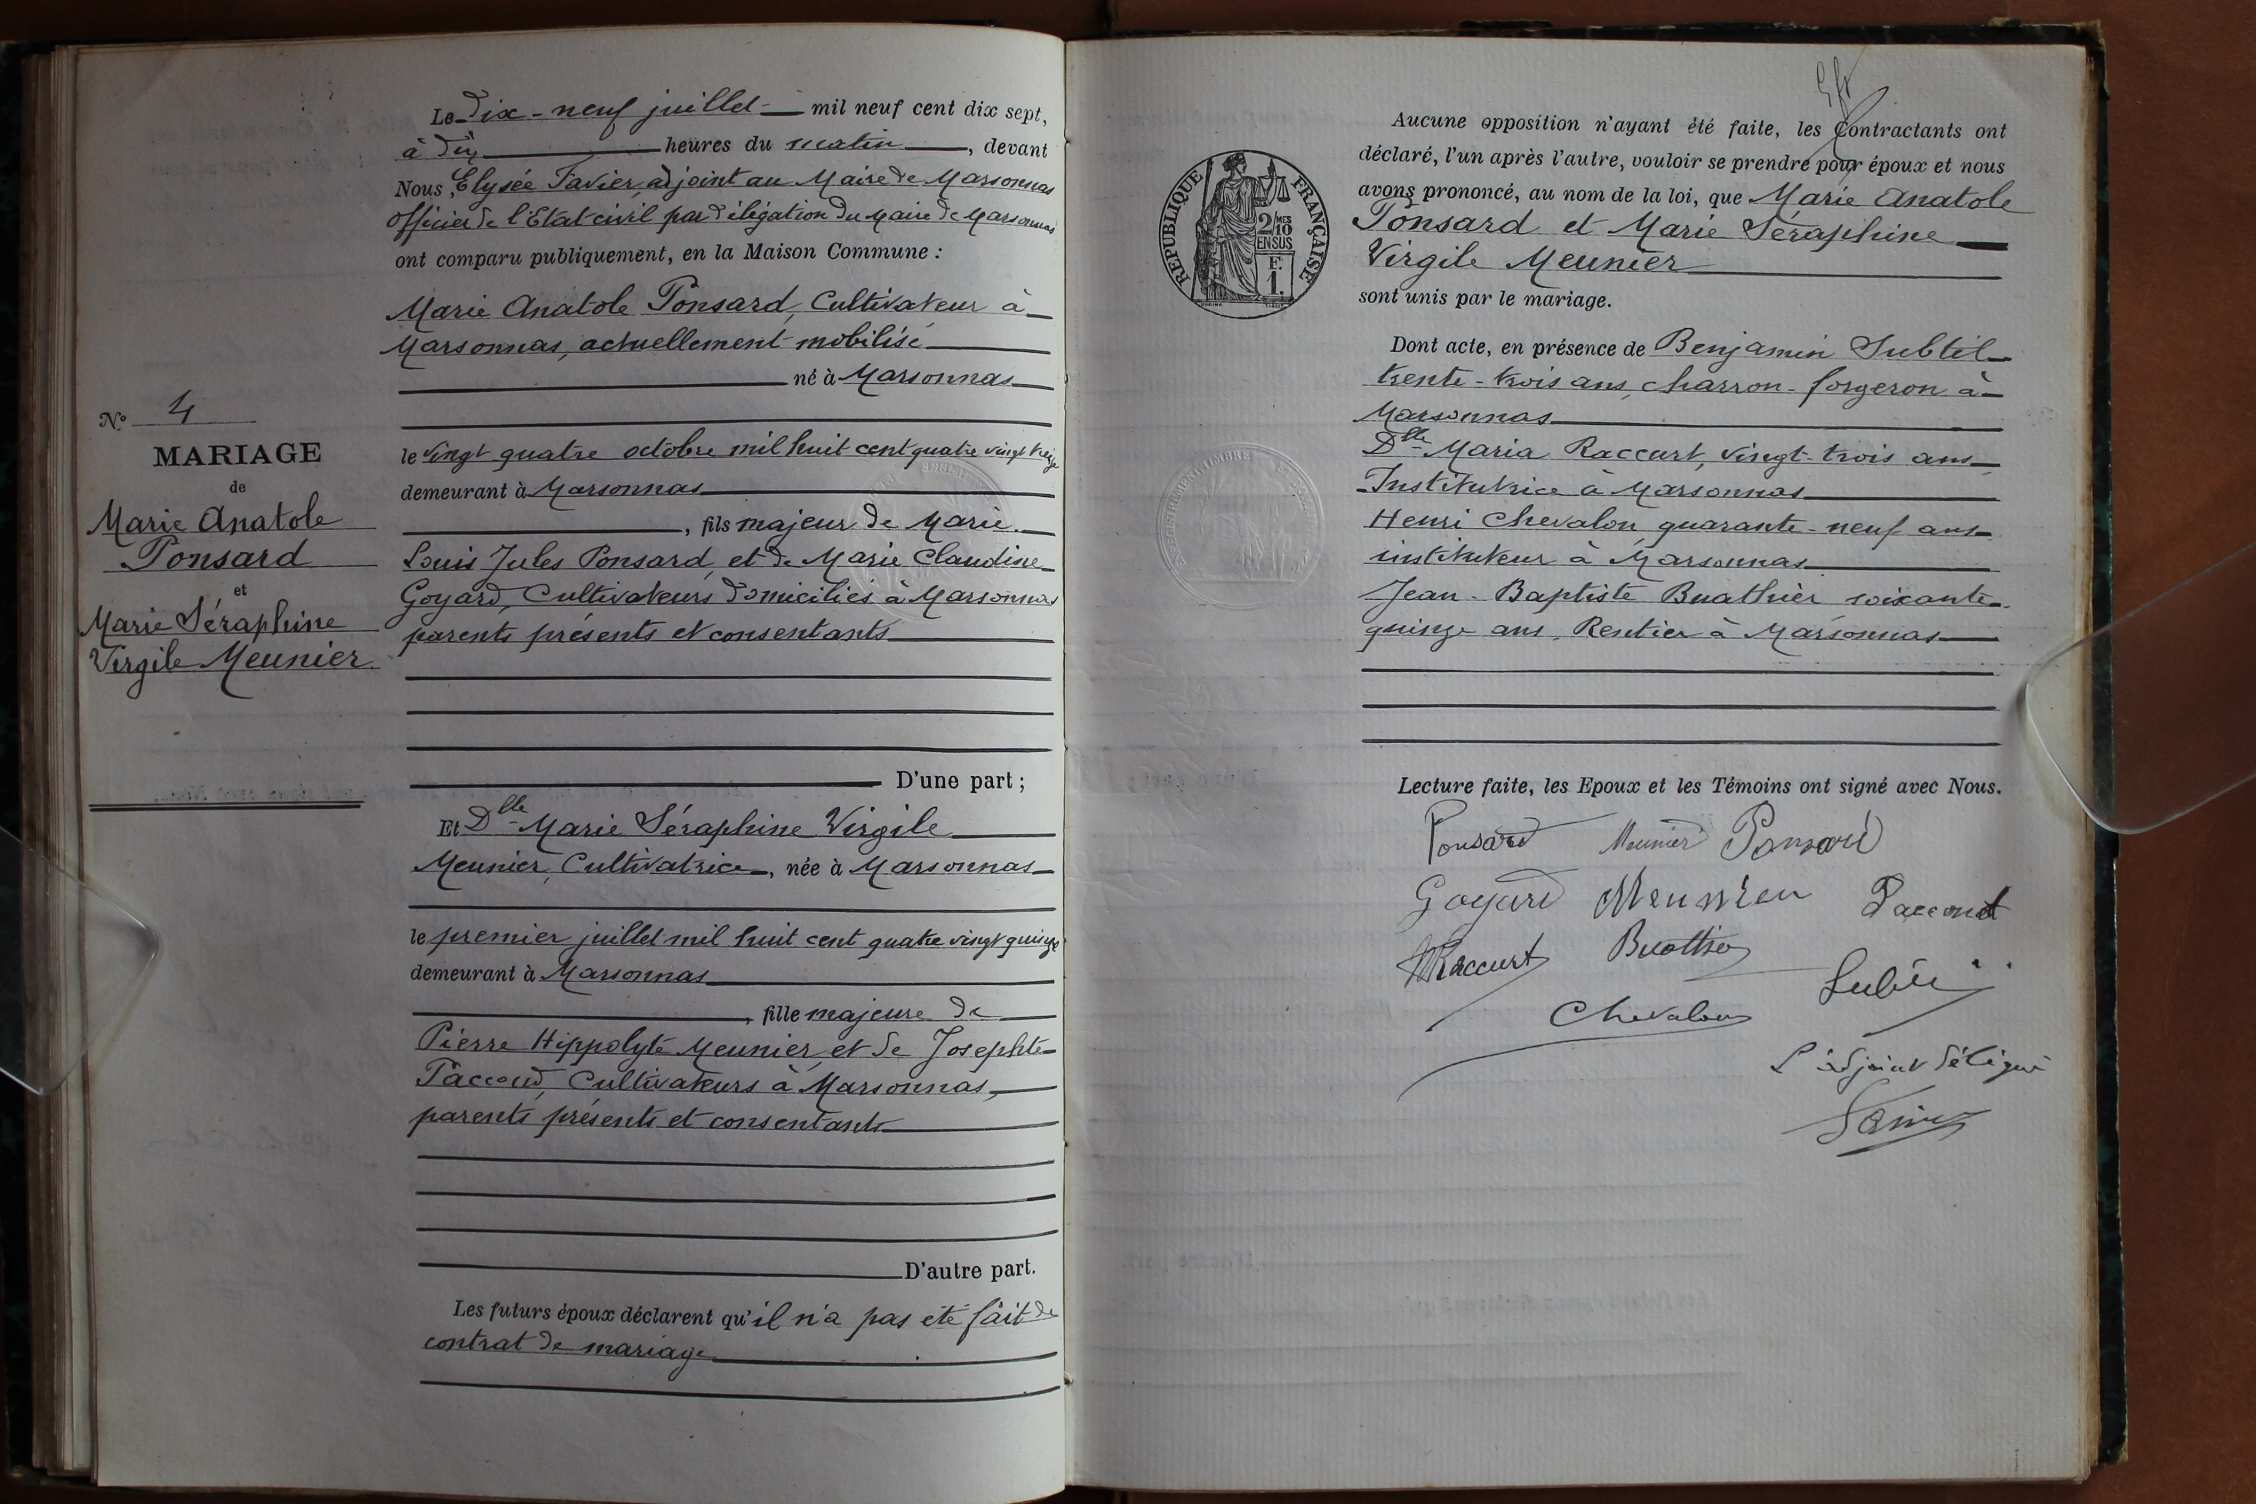 Le dix-neuf juillet mil neuf cent dix sept,
à dix heures du matin, devant
Nous, Elysée Favier, adjoint au Maire de Marsonnas
officier de l'Etat civil par délégation du Maire de Marsonnas
ont comparu publiquement, en la Maison Commune :
Marie Anatole Ponsard, Cultivateur à
Marsonnas, actuellement mobilisé
né à Marsonnas
le vingt quatre octobre mil huit cent quatre vingt treize
demeurant à Marsonnas
, fils majeur de Marie
Louis Jules Ponsard, et de Marie Claudine
Goyard, Cultivateurs domiciliés à Marsonnas
parents présents et consentants
D'une part ;
Et Dlle Marie Séraphine Virgile
Meunier, Cultivatrice, née à Marsonnas
le premier juillet mil huit cent quatre vingt quinze
demeurant à Marsonnas
, fille majeure de
Pierre Hippolyte Meunier, et de Josephte
Paccoud, Cultivateurs à Marsonnas,
parents présents et consentants
D'autre part.
Les futurs époux déclarent qu'il n'a pas été fait de
contrat de mariage
N° 4
MARIAGE
de
Marie Anatole
Ponsard
et
Marie Séraphine
Virgile Meunier
REPUBLIQUE FRANÇAISE
2/10 MES
EN SUS
F.
1.
Aucune opposition n'ayant été faite, les Contractants ont
déclaré, l'un après l'autre, vouloir se prendre pour époux et nous
avons prononcé, au nom de la loi, que Marie Anatole
Ponsard et Marie Séraphine
Virgile Meunier
sont unis par le mariage.
Dont acte, en présence de Benjamin Subtil
trente-trois ans, charron-forgeron à
Marsonnas
Dlle Maria Raccurt, vingt-trois ans
Institutrice à Marsonnas
Henri Chevalon, quarante-neuf ans
instituteur à Marsonnas
Jean-Baptiste Buathier soixante-
quinze ans, Rentier à Marsonnas
Lecture faite, les Epoux et les Témoins ont signé avec Nous.
Ponsard Meunier Ponsard
Goyard Meunier Paccoud
MRaccurt Buathier
Subtil
Chevalon
L'adjoint délégué
Favier